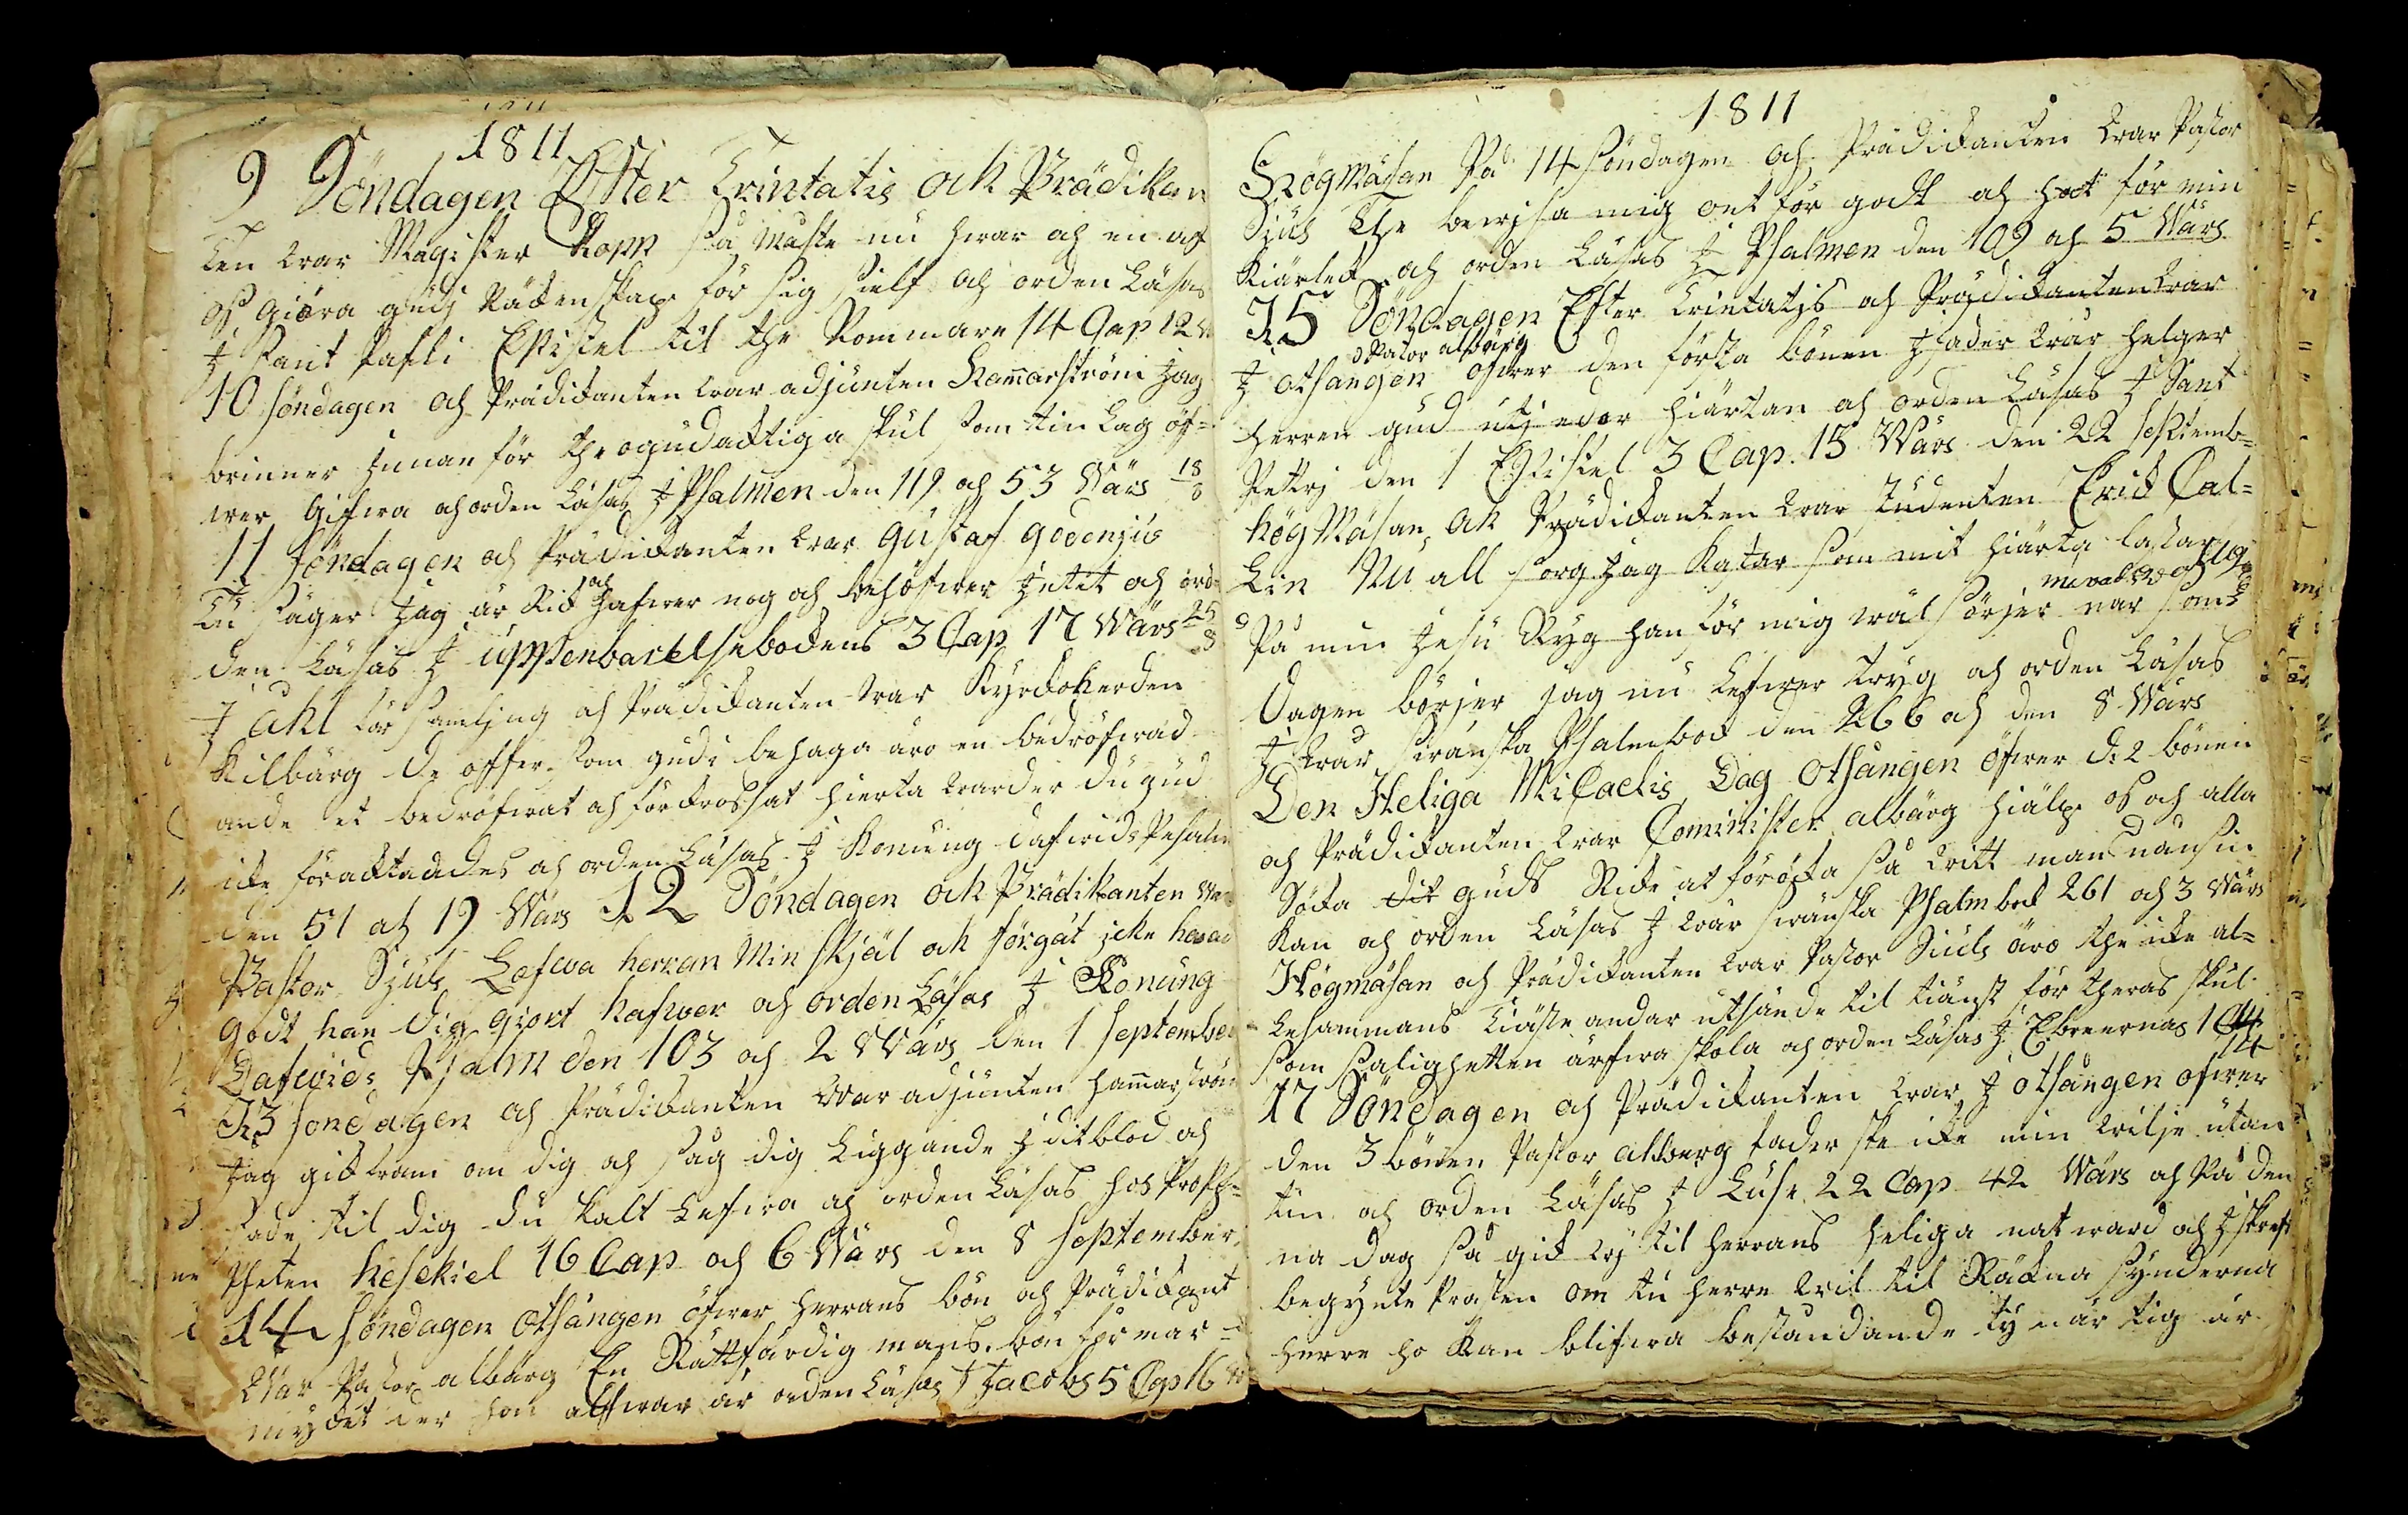 1811
9 Söndagen Efter Trintatis ock Prädikan
ten war Magister Kopp så Måste nu hwar och en af
oss giöra gudj Räkenskap för sig sielf och orden Läsas
J Sant Pafli Epistel til the Rommare 14 Cap 12 w
10 söndagen och Prädikanten war adjunten Hamarström Jag
brinner Jnnan för the ogudacktiga skul som tin Lag öf=
wer Gifwa och orden Läsas J Psalmen den 119 och 53 Wärs 18/8
11 söndagen och Prädikanten war gustaf godenjus
Tu säger Jag är Rik och hafwer nog och behöfwer Jntet och ord=
den Läsas J uppenbarelsebokens 3 Cap 17 Wärs 25/8
J åhl församljng och Prädikanten war Kyrckoherden
Kilbärg de offer som gudi behaga äro en bedröfwad
ande et bedröfwat och förkrossat hierta warder du gud
icke föracktandes och orden Läsas J Konung dafwids Pesalm
den 51 och 19 Wärs 12 Söndagen ock Prädikanten war
Pastor Sjuls Lofwa herran Min själ ock förgät jcke hwad
godt han dig giort hafwer och orden Läsas J Konung
Dafwids Psalm den 103 och 2 Wärs den 1 September
13 söndagen och Prädikanten War adjunten hamarström
Jag gick fram om dig och såg dig Liggande J dit blod och
sade til dig du skalt Lefwa och orden Läsas hos Proph=
pheten hesekiel 16 Cap och 6 Wärs den 8 September
14 söndagen otsången öfwer herrans bön och Prädikant
War Pastor albärg En Rättfärdig mans bön förmår
mycket der hon alfwar är orden Läsas J Jacobs 5 Cap 16 w
1811
HögMäsan På 14 söndagen och Prädikanten war Pastor
Sjuls The bewjsa mig ont för godt och hat för min
Kiärlek och orden Läsas J Psalmen den 109 och 5 Wärs
15 Söndagen Efter Trintatjs och Prädikanten war
Pastor albärg
J otsången öfwer den första bönen Jfader wår helger
herren gud utj eder hiärtan och orden Läsas J Sant
Pettrj den 1 Epistel 3 Cap. 15 Wärs den 22 septemb=
högMäsan ock Prädikanten war studenten Erick Cal=
Lin Nu all sorg Jag Kastar som mit hiärta lastar
På min Jesu Ryg han för mig wäl sörjer nar som
Dagen börjer Jag nu Lefwer tryg och orden Läsas
J wår swänska Psalmbok den 266 och den 8 Wärs
Den Heliga Micaelis Dag otsången öfwer d: 2 bönen
och Prädikanten war Cominister albärg hiälp oss och alla
söka dit guds Rike at föröka så witt man nånsin
Kan och orden Läsas J wår swänska Psalmbok 261 och 3 Wärs
Högmäsan och Prädikanten war Pastor Siuls äro the icke al=
lesammans Tiäste andar utsände til tiänst för theras skul
som salighetten ärfwa skola och orden Läsas J Ebreernas 1 C 14
17 Söndagen och Prädikanten war J otsången ofwer
den 3 bönen Pastor alberg fader ske icke min wilje utan
tin och orden Läsas J Lucse 22 Cap 42 Wärs och På den
na dag så gick wj til herrans heliga natward och J skreft
begynte Prästen om tu herre wil til Räckna synderna
herre ho kan blifwa bestandande ty när tig är